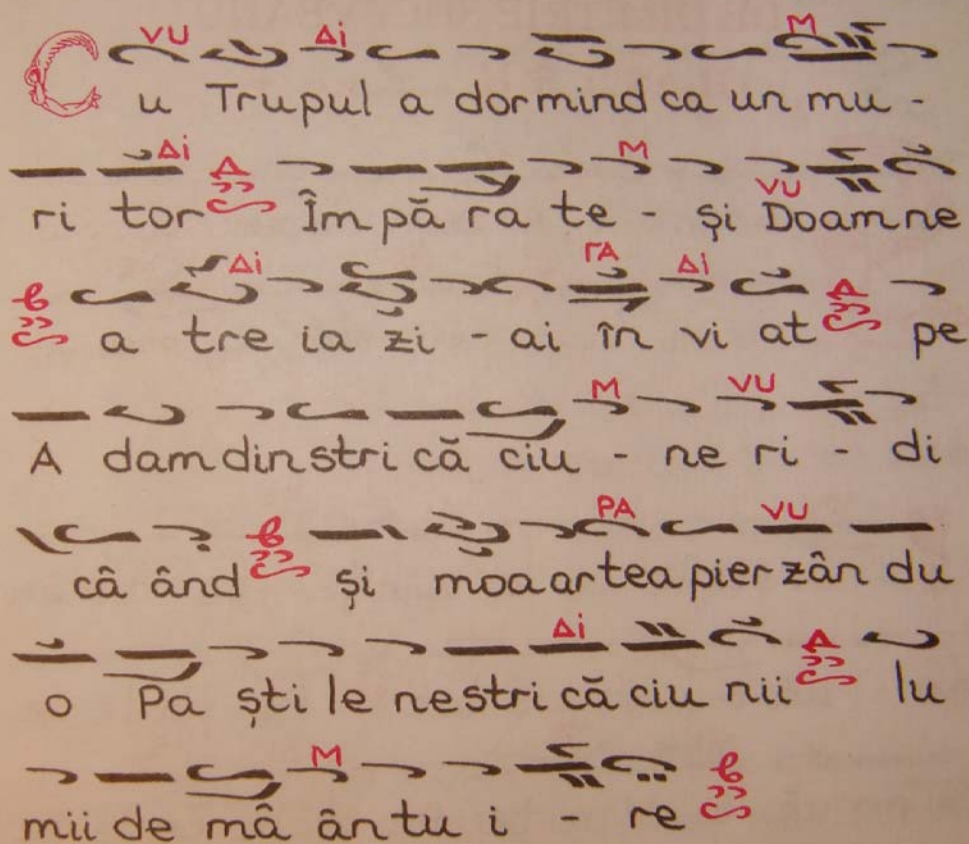 VU Δi M
Cu Trupul a dormind ca un mu -
Δi M VU
ri tor Împă ra te - şi Doamne
Δi ΓA Δi
a tre ia zi - ai în vi at pe
M VU
A damdinstri că ciu - ne ri - di
PA VU
câ ând şi moaarteapierzându
Δi
o Pa şti le nestri că ciu nii lu
M
mii de mâ ântu i - re